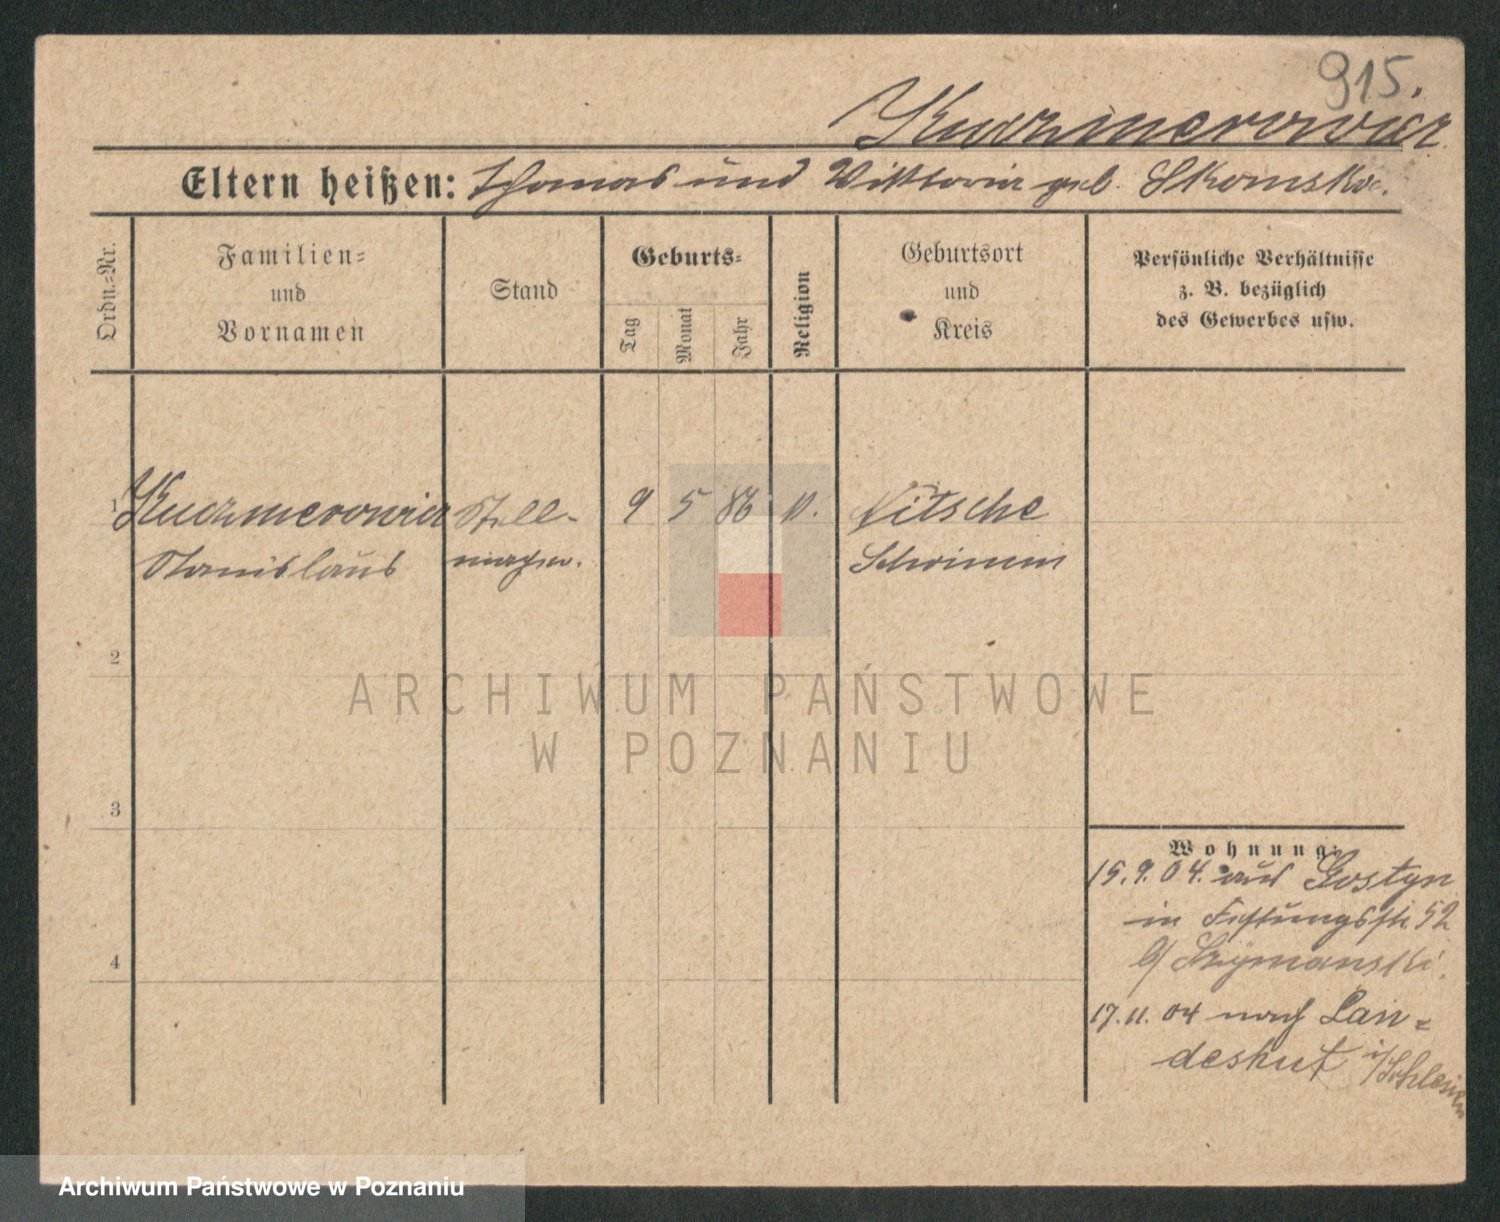 915.
Kuczmerowicz
Eltern heißen: Thomas und Viktoria geb. Skomska.
Ordn.-Nr.
Familien-
und
Vornamen
Stand
Geburts-
Tag
Monat
Jahr
Religion
Geburtsort
und
Kreis
Persönliche Verhältnisse
z. B. bezüglich
des Gewerbes usw.
1 Kuczmerowicz Stell- 9 5 86 Nitsche
Stanislaus macher. Schrimm
2
3
4
Wohnung:
15.9.04. aus Gostyn
in Festungsstr. 52
b/ Szymanski.
17.11.04 nach Lan-
deshut i/Schlesien
ARCHIWUM PAŃSTWOWE
W POZNANIU
Archiwum Państwowe w Poznaniu